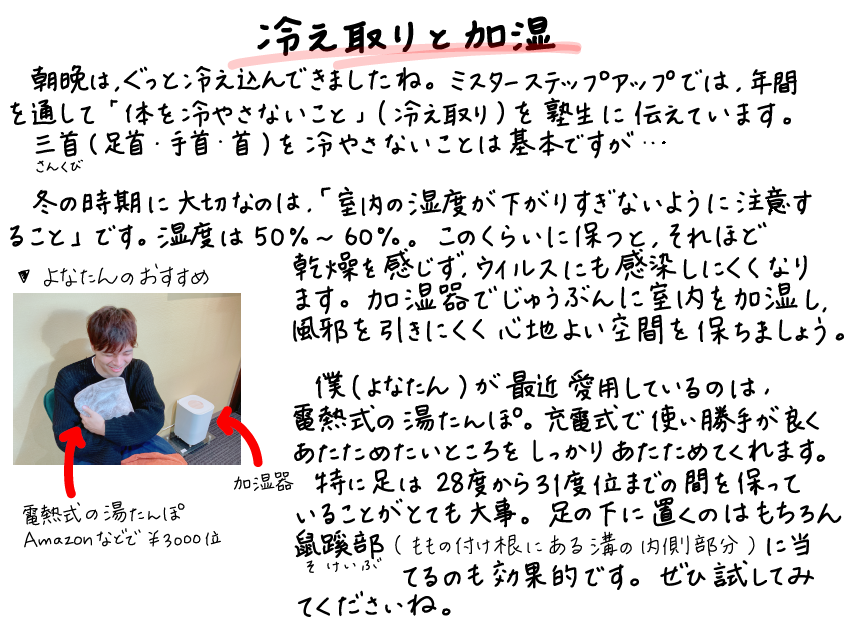 冷え取りと加湿
朝晩は、ぐっと冷え込んできましたね。ミスターステップアップでは、年間
を通して「体を冷やさないこと」(冷え取り)を塾生に伝えています。
三首(足首・手首・首)を冷やさないことは基本ですが…
さんくび
冬の時期に大切なのは、「室内の湿度が下がりすぎないように注意す
ること」です。湿度は50%～60%。このくらいに保つと、それほど
乾燥を感じず、ウイルスにも感染しにくくなり
ます。加湿器でじゅうぶんに室内を加湿し、
風邪を引きにくく心地よい空間を保ちましょう。
▼ よなたんのおすすめ
加湿器
電熱式の湯たんぽ
Amazonなどで ¥3000位
僕(よなたん)が最近愛用しているのは、
電熱式の湯たんぽ。充電式で使い勝手が良く
あたためたいところをしっかりあたためてくれます。
特に足は28度から31度位までの間を保って
いることがとても大事。足の下に置くのはもちろん
鼠蹊部(ももの付け根にある溝の内側部分)に当
そけいぶ
てるのも効果的です。ぜひ試してみ
てくださいね。